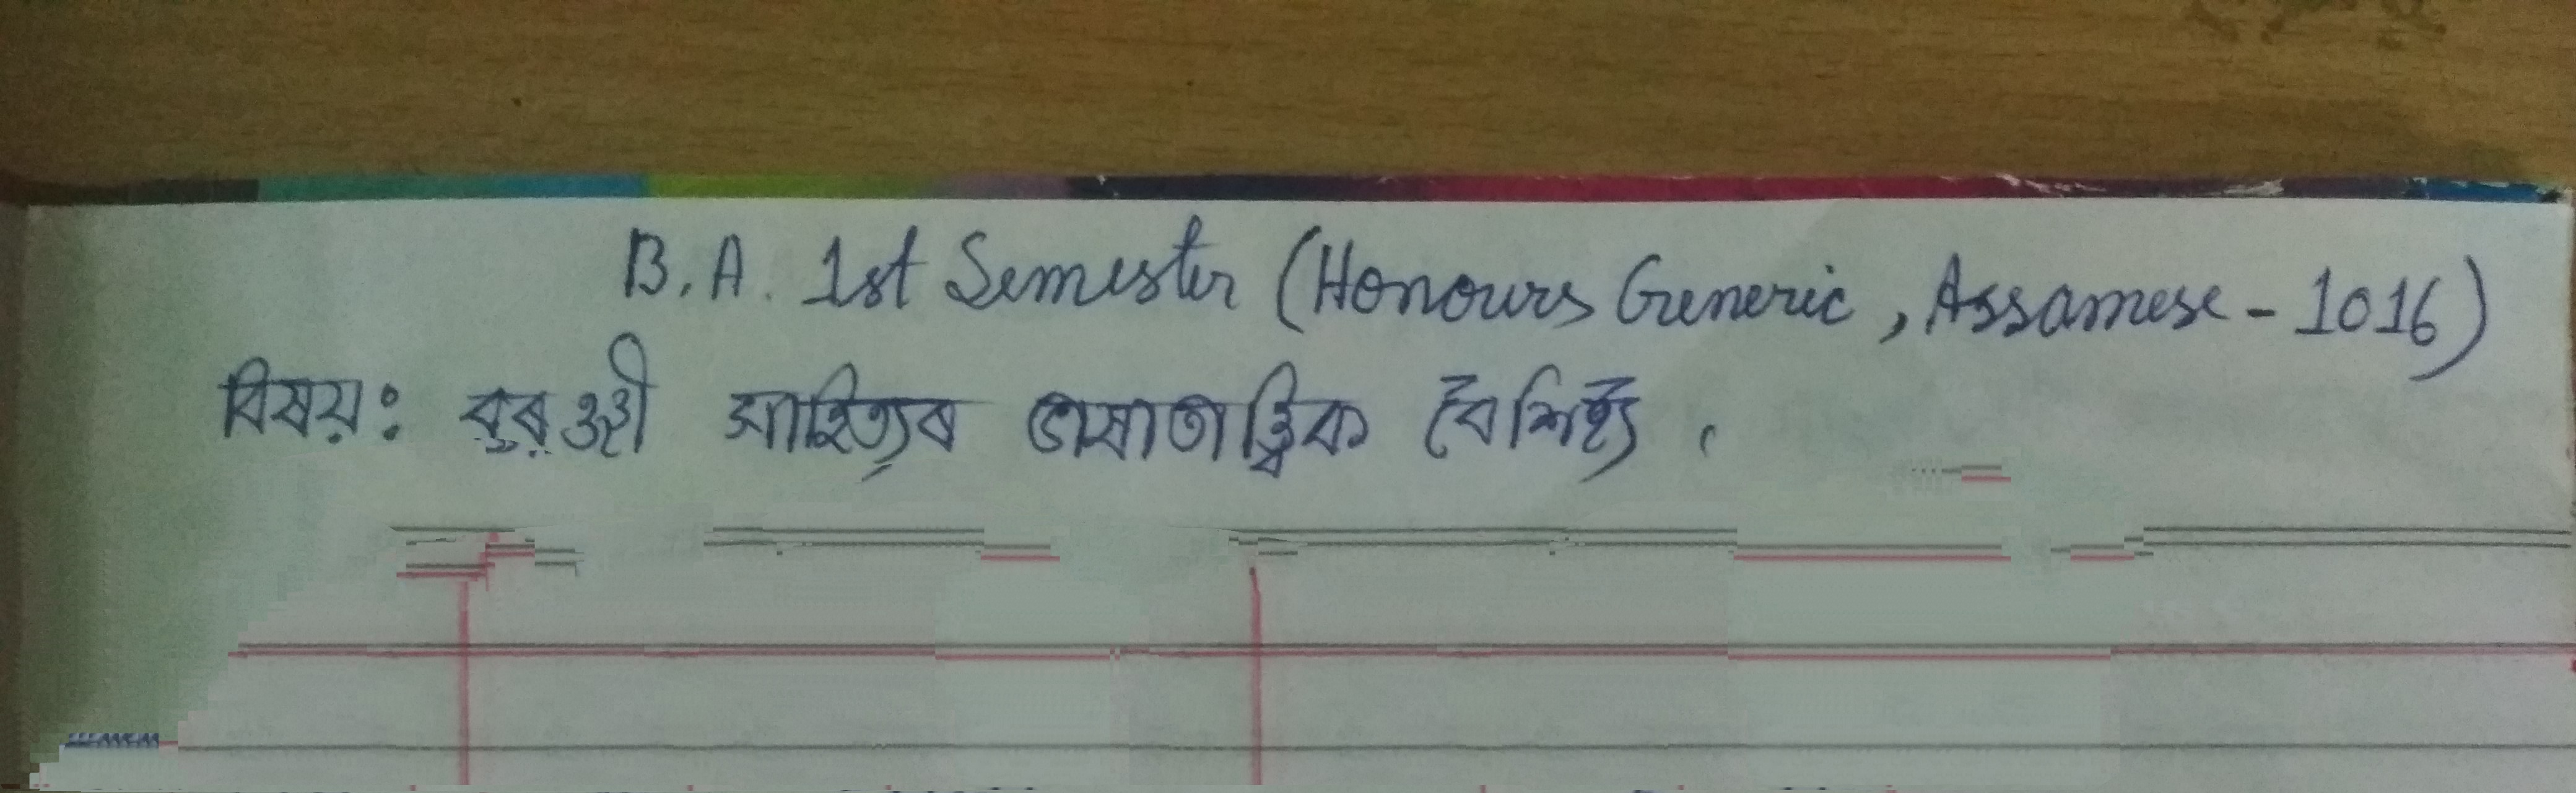 B.A. 1st Semester (Honours Generic, Assamese - 1016)
বিষয়: বুৰঞ্জী সাহিত্যৰ ভাষাতাত্ত্বিক বৈশিষ্ট্য ।